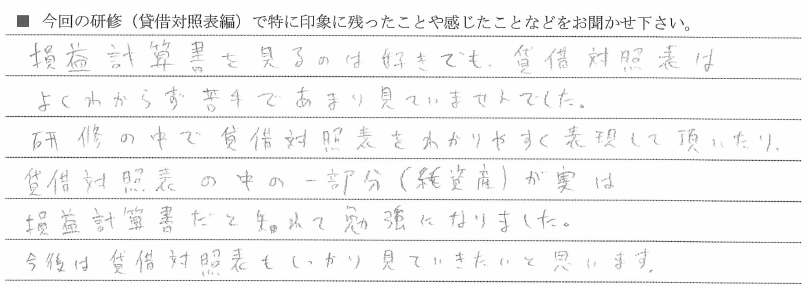 ■ 今回の研修（貸借対照表編）で特に印象に残ったことや感じたことなどをお聞かせ下さい。
損益計算書を見るのは好きでも、貸借対照表は
よくわからず苦手であまり見ていませんでした。
研修の中で貸借対照表をわかりやすく表現して頂いたり、
貸借対照表の中の一部分（純資産）が実は
損益計算書だと知れて勉強になりました。
今後は貸借対照表もしっかり見ていきたいと思います。